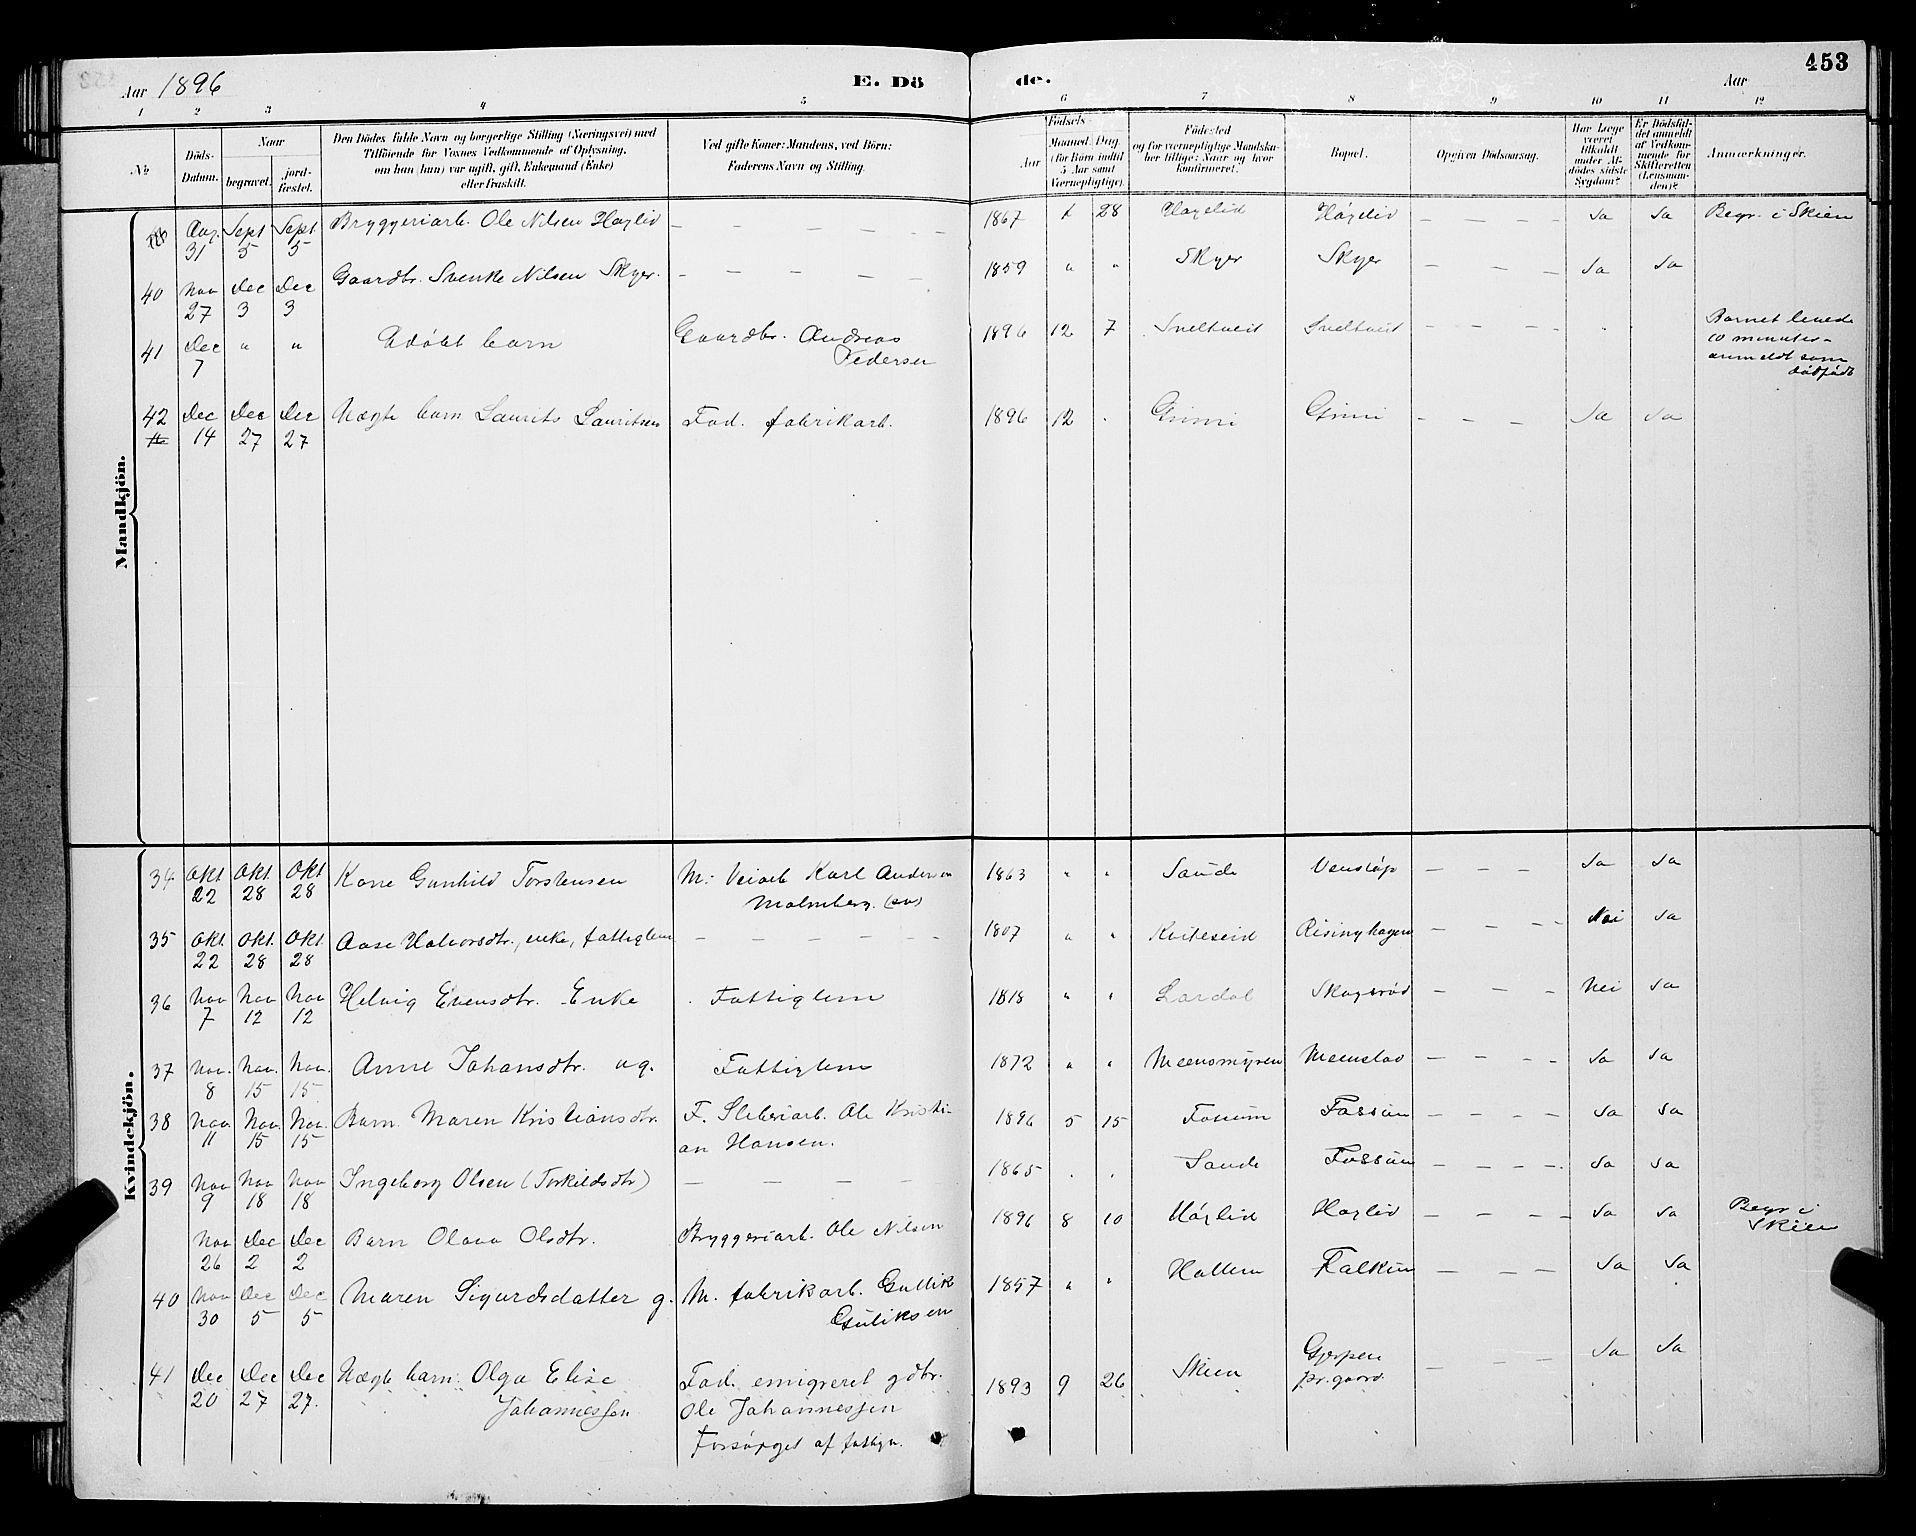 453
Aar 1896 E. Dö de. Aar
1 2 3 4 5 6 7 8 9 10 11 12
No.
Döds-Datum.
Naar
begravet.
jord-fæstet.
Den Dödes fulde Navn og borgerlige Stilling (Næringsvei) med
Tilföiende for Voxnes Vedkommende af Oplysning,
om han (hun) var ugift, gift, Enkemand (Enke)
eller fraskilt.
Ved gifte Koner: Mandens, ved Börn:
Faderens Navn og Stilling.
Födsels
Aar
Maaned. Dag
(for Börn indtil
5 Aar samt
Værnepligtige).
Födested
og for værnepligtige Mandska-
ber tillige: Naar og hvor
konfirmeret.
Bopæl.
Opgiven Dödsaarsag.
Har Læge
været
tilkaldt
under Af-
dödes sidste
Sygdom?
Er Dödsfal-
det anmeldt
af Vedkom-
mende for
Skifteretten
(Lensman-
den)?
Anmærkninger.
Mandkjön.
Aug. 31 Sept 5 Sept 5 Bryggeriarb. Ole Nilsen Høglid — — — — — 1867 28 Høgelid Høgelid — — — — Ja Ja Begr. i Skien
40 Nov 27 Dec 3 Dec 3 Gaardbr. Svenke Nilsen Skyer. — — — — — 1859 " " Skyer Skyer — — — Ja Ja
41 Dec 7 " " Udöbt barn Gaardbr. Andreas Pedersen 1896 12 7 Sneltveit Sneltveit — — — — Barnet levede
10 minuter -
anmeldt som
dödfödt
42 Dec 14 Dec 27 Dec 27 Ægte barn Laurits Lauritsen Fad. fabrikarb. 1896 12 Grini Grini — — — Ja Ja
Kvindekjön.
34 Okt 22 Okt 28 Okt 28 Kone Gunhild Torstensen M: Veiarb Karl Andersen
Malmberg. (sv) 1863 " " Saude Venstöp — — — Ja Ja
35 Okt 22 Okt. 28 Okt. 28 Aase Halvorsdtr., enke, fattiglem — — — — — 1807 " " Kviteseid Risinghagen — — — Nei Ja
36 Nov 7 Nov 12 Nov 12 Helvig Evensdtr. Enke Fattiglem 1818 " " Lardal Skogsröd — — — Nei Ja
37 Nov. 8 Nov. 15 Nov. 15 Anne Johansdtr. ug. Fattiglem 1872 " " Meensmyren Meenstad — — — — Ja Ja
38 Nov. 11 Nov. 15 Nov. 15 Barn Maren Kristiansdtr. F. Sliberiarb. Ole Kristi-
an Hansen. 1896 5 15 Fossum Fossum — — — — Ja Ja
39 Nov 9 Nov 18 Nov 18 Ingeborg Olsen (Torkildsdtr) — — — — 1865 Saude Fossum — — — — Ja Ja
Nov 26 Dec 2 Dec 2 Barn Olava Olsdtr. Bryggeriarb. Ole Nilsen 1896 8 10 Höglid Høglid — — — — Ja Ja Begr i
Skien
40 Nov 30 Dec 5 Dec 5 Maren Sigurdsdatter g. M. fabrikarb. Gullik
Gulliksen 1857 " " Hollen Falkum — — — Ja Ja
41 Dec 20 Dec 27 Dec 27. Ægte barn Olga Elise
Johannessen Fad. emigreret gdbr.
Ole Johannessen
Forsörget af fattigv. 1893 9 26 Skien Gjerpen
pr.gaard — — — Ja Ja